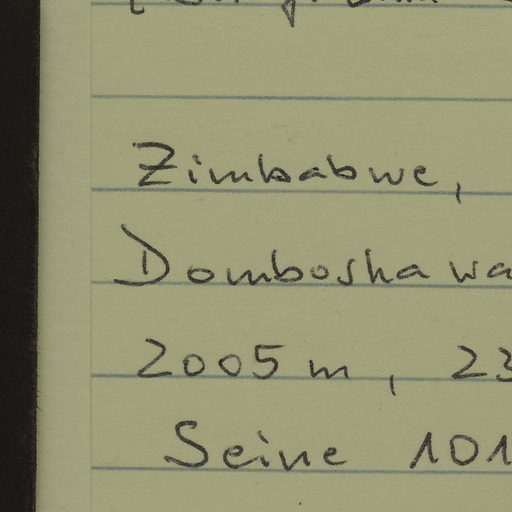 Zimbabwe,
Domboshawa
2005 m, 23
Seine 101